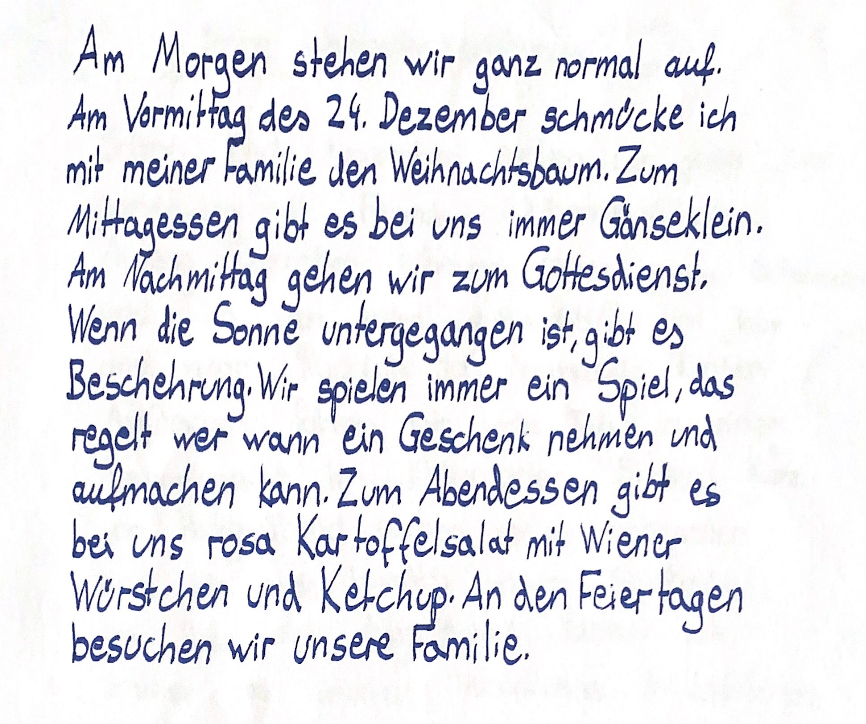 Am Morgen stehen wir ganz normal auf.
Am Vormittag des 24. Dezember schmücke ich
mit meiner Familie den Weihnachtsbaum. Zum
Mittagessen gibt es bei uns immer Gänseklein.
Am Nachmittag gehen wir zum Gottesdienst.
Wenn die Sonne untergegangen ist, gibt es
Beschehrung. Wir spielen immer ein Spiel, das
regelt wer wann ein Geschenk nehmen und
aufmachen kann. Zum Abendessen gibt es
bei uns rosa Kartoffelsalat mit Wiener
Würstchen und Ketchup. An den Feiertagen
besuchen wir unsere Familie.